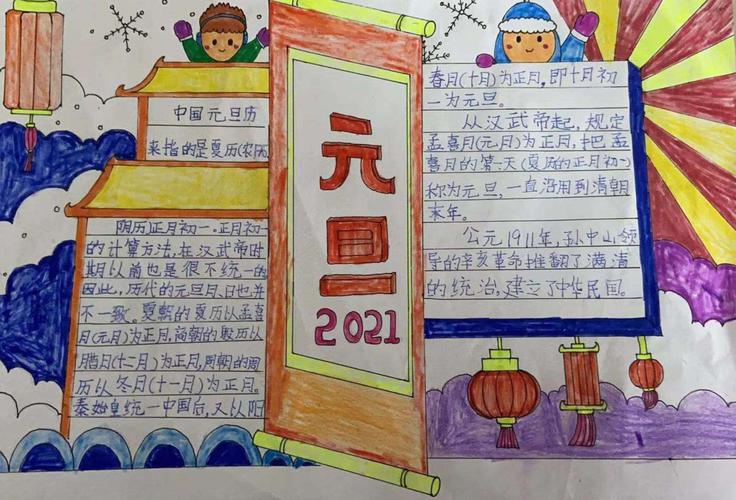 中国元旦历
来指的是夏历(农历
阴历)正月初一。正月初一
的计算方法,在汉武帝时
期以前也是很不统一的
因此,历代的元旦月、日也并
不一致。夏朝的夏历以孟喜
月(元月)为正月,商朝的殷历以
腊月(十二月)为正月,周朝的周
历以冬月(十一月)为正月。
秦始皇统一中国后,又以阳
元
旦
2021
春月(十月)为正月,即十月初
一为元旦。
从汉武帝起,规定
孟喜月(元月)为正月,把孟
喜月的第一天(夏历的正月初一)
称为元旦,一直沿用到清朝
末年。
公元1911年,孙中山领
导的辛亥革命推翻了满清
的统治,建立了中华民国。